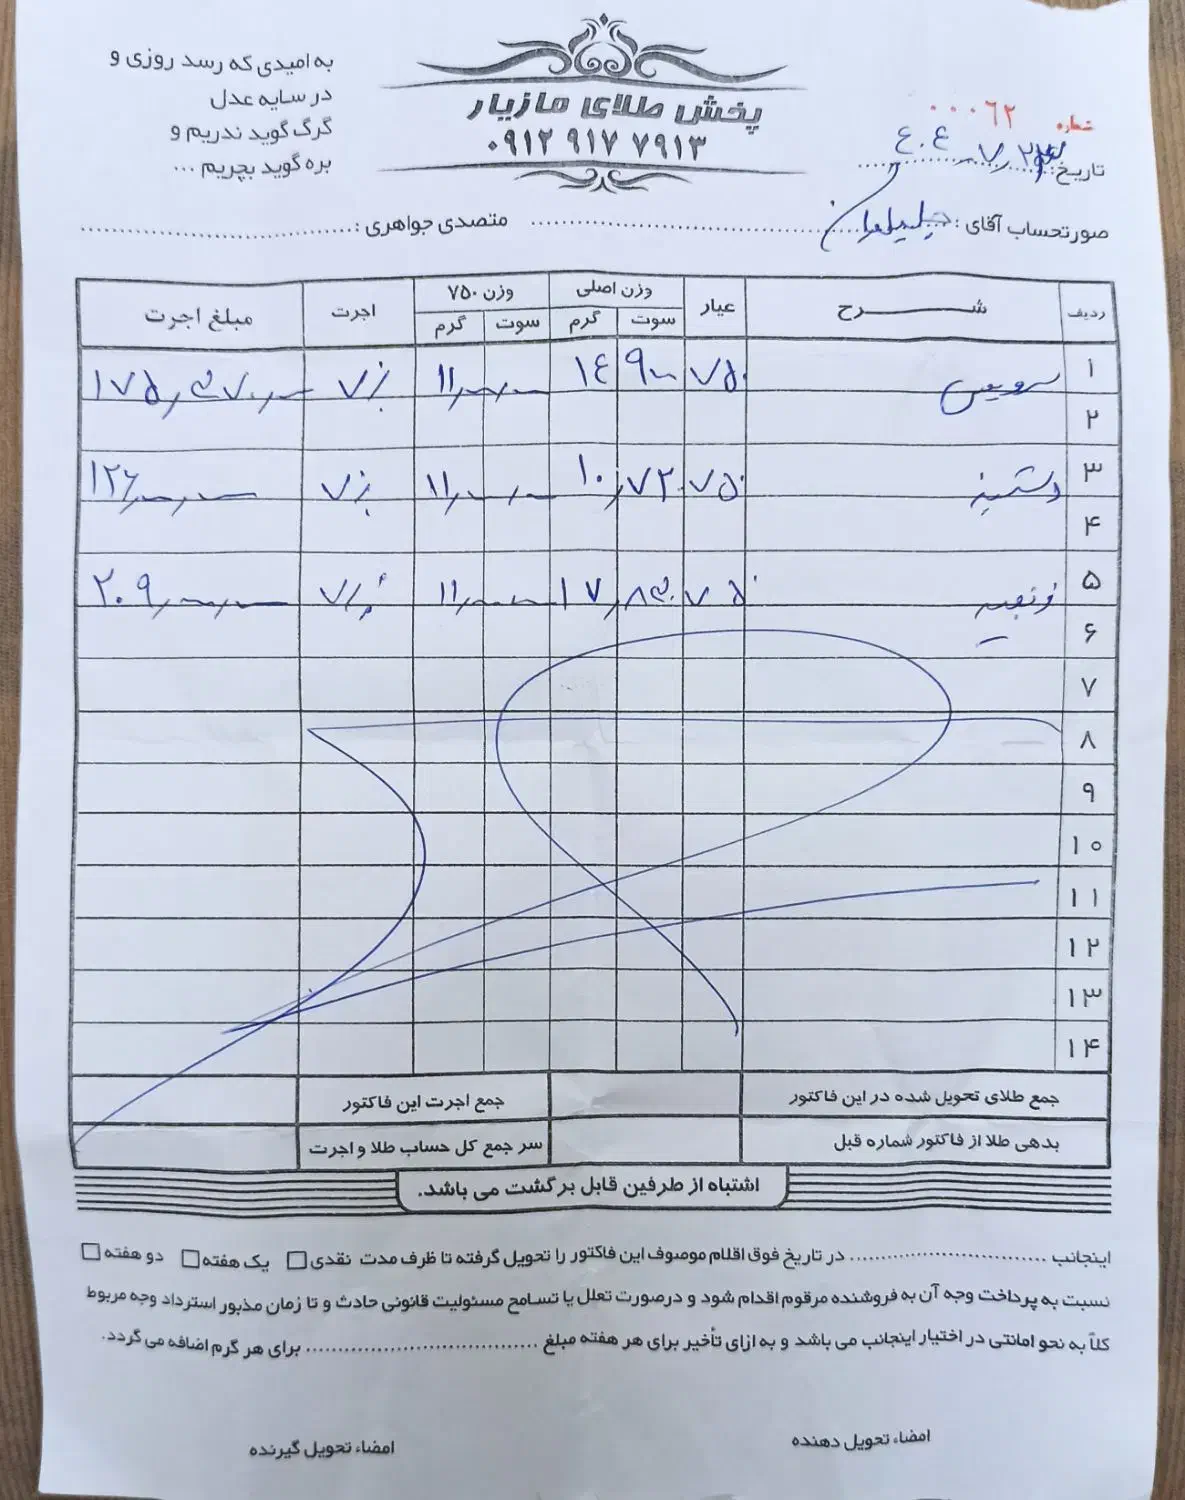 به امیدی که رسد روزی و
در سایه عدل
گرگ گوید ندریم و
بره گوید بچریم ...
پخش طلای مازیار
۰۹۱۲ ۹۱۷ ۷۹۱۳
شماره ۰۰۰۶۲
تاریخ:
صورتحساب آقای:
متصدی جواهری:
ردیف شرح عیار وزن اصلی وزن ۷۵۰ اجرت مبلغ اجرت
سوت گرم سوت گرم
۱ سرویس ۷۵۰ ۹۰۰ ۱۴ ۱۱٫۰۰۰٫۰۰۰ ۷٪
۲
۳ دستبند ۷۵۰ ۷۲۰ ۱۰ ۱۱٫۰۰۰٫۰۰۰ ۷٪ ۱۲۶٫۰۰۰٫۰۰۰
۴
۵ ۷۵۰ ۸۳۰ ۱۷ ۱۱٫۰۰۰٫۰۰۰ ۷٪ ۲۰۹٫۰۰۰٫۰۰۰
۶
۷
۸
۹
۱۰
۱۱
۱۲
۱۳
۱۴
جمع طلای تحویل شده در این فاکتور جمع اجرت این فاکتور
بدهی طلا از فاکتور شماره قبل سر جمع کل حساب طلا و اجرت
اشتباه از طرفین قابل برگشت می باشد.
اینجانب ........ در تاریخ فوق اقلام موصوف این فاکتور را تحویل گرفته تا ظرف مدت نقدی □ یک هفته □ دو هفته □
نسبت به پرداخت وجه آن به فروشنده مرقوم اقدام شود و درصورت تعلل یا تسامح مسئولیت قانونی حادث و تا زمان مذبور استرداد وجه مربوط
کلاً به نحو امانتی در اختیار اینجانب می باشد و به ازای تأخیر برای هر هفته مبلغ ........ برای هر گرم اضافه می گردد.
امضاء تحویل دهنده
امضاء تحویل گیرنده